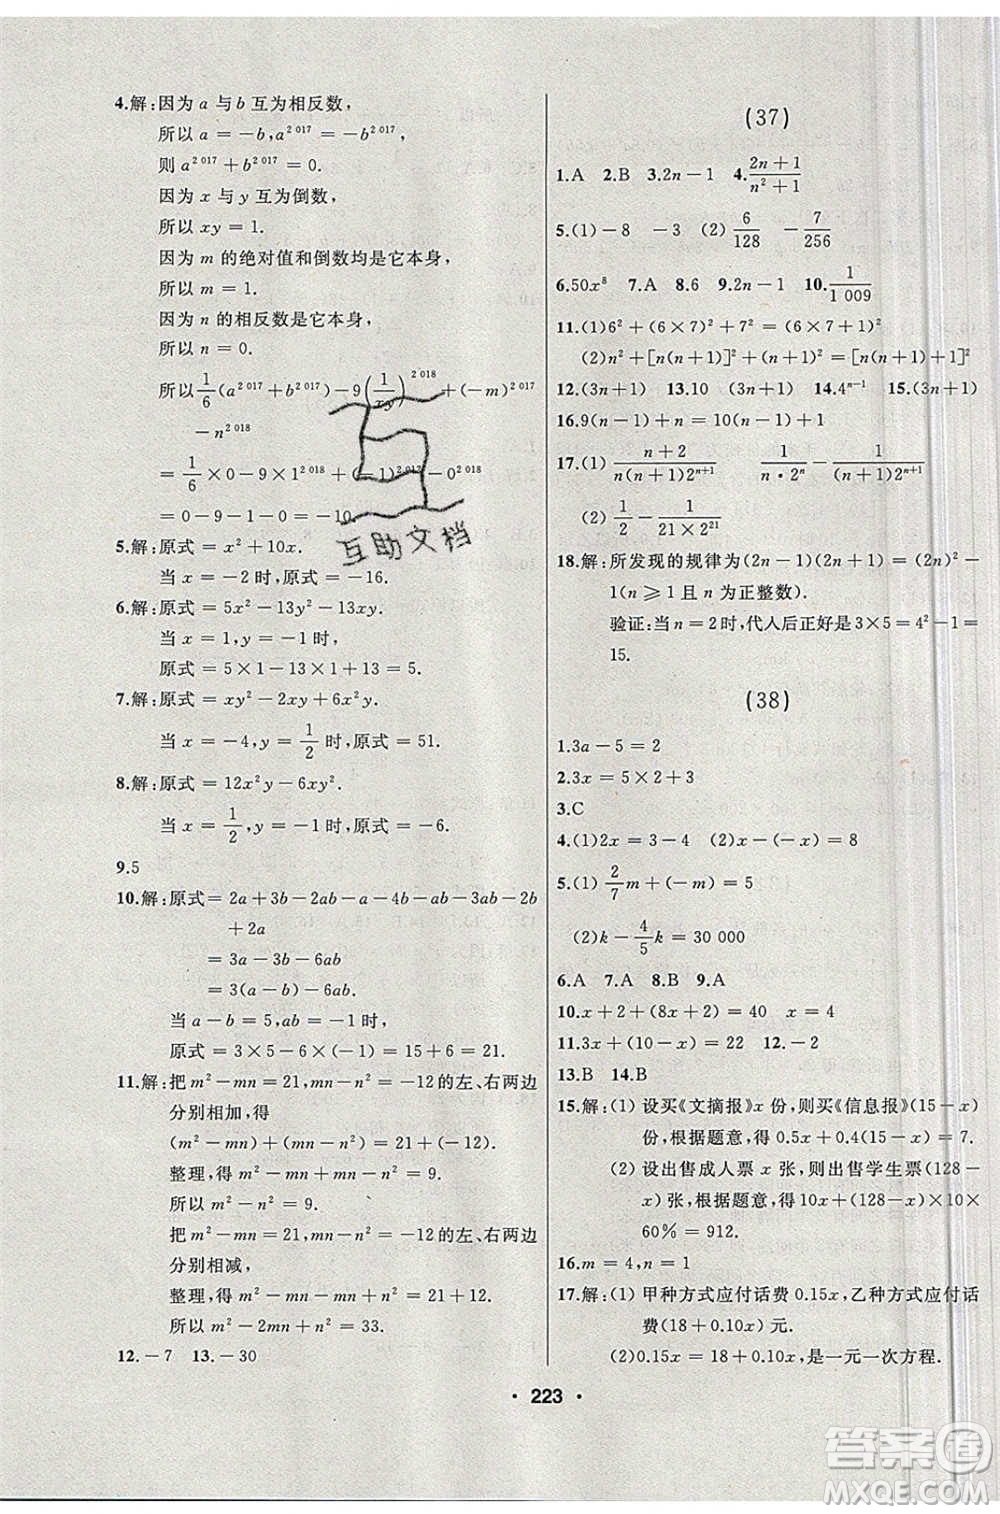 4.解:因为 a 与 b 互为相反数,
所以 a = -b, a^2 017 = -b^2 017,
则 a^2 017 + b^2 017 = 0.
因为 x 与 y 互为倒数,
所以 xy = 1.
因为 m 的绝对值和倒数均是它本身,
所以 m = 1.
因为 n 的相反数是它本身,
所以 n = 0.
所以 1/6 (a^2 017 + b^2 017) - 9(1/xy)^2 018 + (-m)^2 017
- n^2 018
= 1/6 × 0 - 9 × 1^2 018 + (-1)^2 017 - 0^2 018
= 0 - 9 - 1 = -10.
5.解:原式 = x² + 10x.
当 x = -2 时,原式 = -16.
6.解:原式 = 5x² - 13y² - 13xy.
当 x = 1, y = -1 时,
原式 = 5 × 1 - 13 × 1 + 13 = 5.
7.解:原式 = xy² - 2xy + 6x.
当 x = -4, y = 1/2 时,原式 = 51.
8.解:原式 = 12x²y - 6xy².
当 x = 1/2, y = -1 时,原式 = -6.
9.5
10.解:原式 = 2a + 3b - 2ab - a - 4b - ab - 3ab - 2b
+ 2a
= 3a - 3b - 6ab
= 3(a - b) - 6ab.
当 a - b = 5, ab = -1 时,
原式 = 3 × 5 - 6 × (-1) = 15 + 6 = 21.
11.解:把 m² - mn = 21, mn - n² = -12 的左、右两边
分别相加,得
(m² - mn) + (mn - n²) = 21 + (-12).
整理,得 m² - mn + mn - n² = 9.
所以 m² - n² = 9.
把 m² - mn = 21, mn - n² = -12 的左、右两边
分别相减,
整理,得 m² - mn - mn + n² = 21 + 12.
所以 m² - 2mn + n² = 33.
12. -7 13. -30
(37)
1.A 2.B 3.2n - 1 4. (2n + 1)/(n² + 1)
5.(1) -8 -3 (2) 6/128 -7/256
6.50x⁸ 7.A 8.6 9.2n - 1 10. 1/1 009
11.(1)6² + (6 × 7)² + 7² = (6 × 7 + 1)²
(2)n² + [n(n + 1)]² + (n + 1)² = [n(n + 1) + 1]²
12.(3n + 1) 13.10 (3n + 1) 14.4ⁿ⁻¹ 15.(3n + 1)
16.9(n - 1) + n = 10(n - 1) + 1
17.(1) (n + 2)/(n(n + 1)2ⁿ⁺¹) 1/(n · 2ⁿ) - 1/((n + 1)2ⁿ⁺¹)
(2) 1/2 - 1/(21 × 2²¹)
18.解:所发现的规律为(2n - 1)(2n + 1) = (2n)² -
1(n ⩾ 1 且 n 为正整数).
验证:当 n = 2 时,代人后正好是 3 × 5 = 4² - 1 =
15.
(38)
1.3a - 5 = 2
2.3x = 5 × 2 + 3
3.C
4.(1)2x = 3 - 4 (2)x - (-x) = 8
5.(1) 2/7 m + (-m) = 5
(2)k - 4/5 k = 30 000
6.A 7.A 8.B 9.A
10.x + 2 + (8x + 2) = 40 x = 4
11.3x + (10 - x) = 22 12. -2
13.B 14.B
15.解:(1) 设买《文摘报》x 份,则买《信息报》(15 - x)
份,根据题意,得 0.5x + 0.4(15 - x) = 7.
(2) 设出售成人票 x 张,则出售学生票(128 -
x)张,根据题意,得 10x + (128 - x) × 10 ×
60% = 912.
16.m = 4, n = 1
17.解:(1) 甲种方式应付话费 0.15x 元,乙种方式应付话
费(18 + 0.10x)元.
(2)0.15x = 18 + 0.10x,是一元一次方程.
· 223 ·
互助文档
答案圈
MXQE.COM